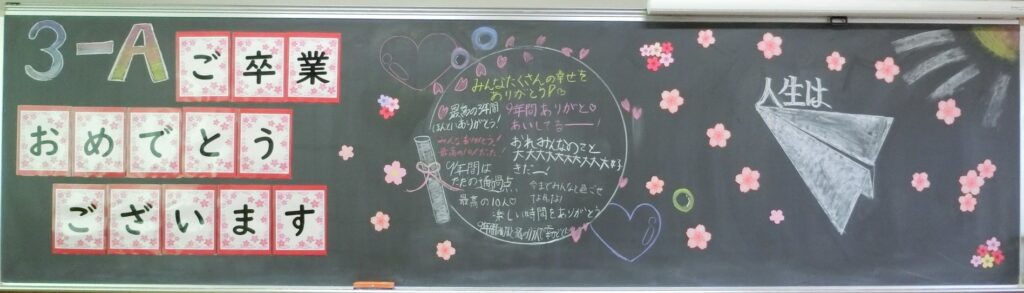 3-A
ご卒業
おめでとう
ございます
みんなたくさんの幸せを
ありがとう
最高の3年間
ほんとにありがとう!
9年間ありがと♡
あいしてるーー!
おれみんなのこと
大大大大大大大大大大大大#3
きだー!
9年間は
ただの通過点
最高の10人♡
今までみんなと過ごせ
てよかった!
楽しい時間をありがとう
人生は